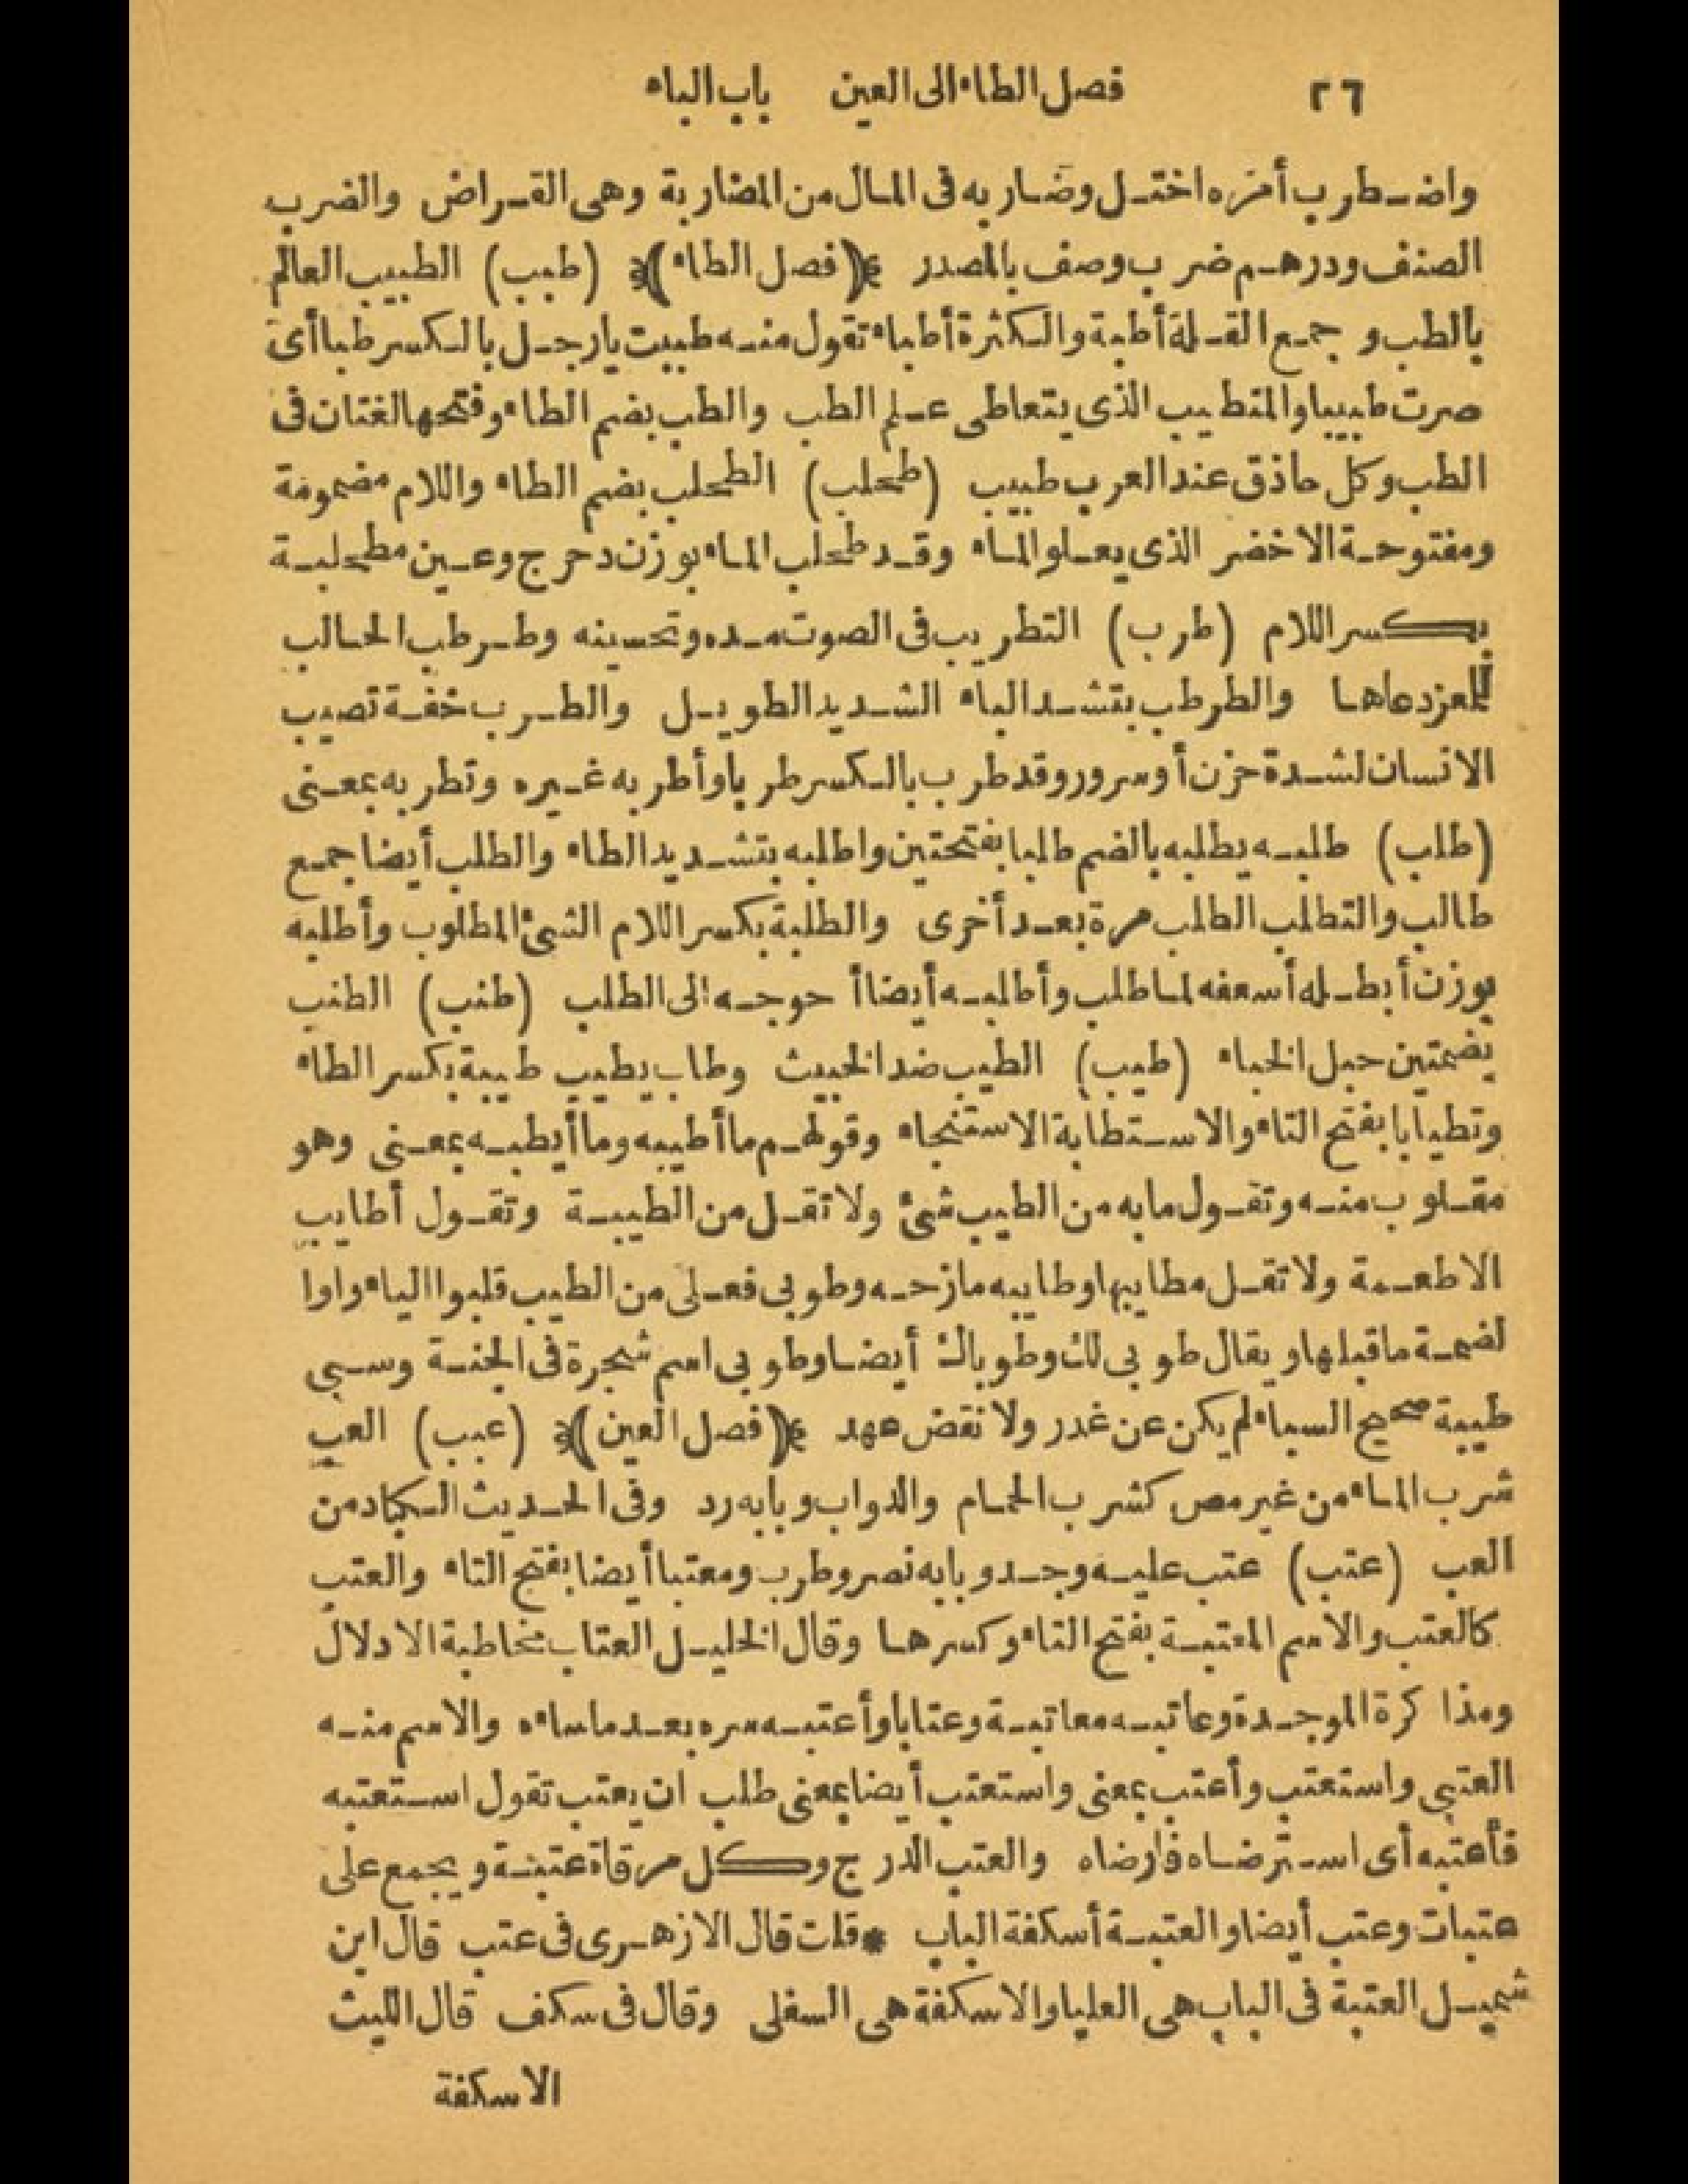 ٢٦ فصل الطاء الى العين باب الباء
واضطرب أمره اختل وضاربه فى المال من المضاربة وهى القراض والضرب
الصنف ودرهم ضرب وصف بالمصدر ﴿(فصل الطاء)﴾ (طبب) الطبيب العالم
بالطب و جمع القلة أطبة والكثرة أطباء تقول منه طببت يارجل بالكسر طبا أى
صرت طبيبا والمتطبب الذى يتعاطى علم الطب والطب بضم الطاء وفتحها لغتان فى
الطب وكل حاذق عند العرب طبيب (طحلب) الطحلب بضم الطاء واللام مضمومة
ومفتوحة الاخضر الذى يعلو الماء وقد طحلب الماء بوزن دحرج وعين مطحلبة
بكسر اللام (طرب) التطريب فى الصوت مده وتحسينه وطرطب الحالب
للمعز دعاها والطرطب بتشد الباء الشديد الطويل والطرب خفة تصيب
الانسان لشدة حزن أو سرور وقد طرب بالكسر طربا وأطربه غيره وتطربه بمعنى
(طلب) طلبه يطلبه بالضم طلبا بفتحتين واطلبه بتشديد الطاء والطلب أيضا جمع
طالب والتطلب الطلب مرة بعد أخرى والطلبة بكسر اللام الشئ المطلوب وأطلبه
بوزن أبطله أسعفه لما طلب وأطلبه أيضا أحوجه الى الطلب (طنب) الطنب
بضمتين حبل الخباء (طيب) الطيب ضد الخبيث وطاب يطيب طيبة بكسر الطاء
وتطيابا بفتح التاء والاستطابة الاستنجاء وقولهم ما أطيبه وما أيطبه بمعنى وهو
مقلوب منه وتقول ما به من الطيب شئ ولا تقل من الطيبة وتقول أطايب
الاطعمة ولا تقل مطايبها وطايبه مازحه وطوبى فعلى من الطيب قلبوا الياء واوا
لضمة ما قبلها ويقال طوبى لك وطوباك أيضا وطوبى اسم شجرة فى الجنة وسبى
طيبة صحيح السباء لم يكن عن غدر ولا نقض عهد ﴿(فصل العين)﴾ (عبب) العب
شرب الماء من غير مص كشرب الحمام والدواب وبابه رد وفى الحديث الكباد من
العب (عتب) عتب عليه وجد وبابه نصر وطرب ومعتبا أيضا بفتح التاء والعتب
كالعتب والاسم المعتبة بفتح التاء وكسرها وقال الخليل العتاب مخاطبة الادلال
ومذاكرة الموجدة وعاتبه معاتبة وعتابا وأعتبه سره بعد ما ساءه والاسم منه
العتبى واستعتب وأعتب بمعنى واستعتب أيضا بمعنى طلب ان يعتب تقول استعتبه
فأعتبه أى استرضاه فأرضاه والعتب الدرج وكل مرقاة عتبة ويجمع على
عتبات وعتب أيضا والعتبة أسكفة الباب * قلت قال الازهرى فى عتب قال ابن
شميل العتبة فى الباب هى العليا والاسكفة هى السفلى وقال فى سكف قال الليث
الاسكفة